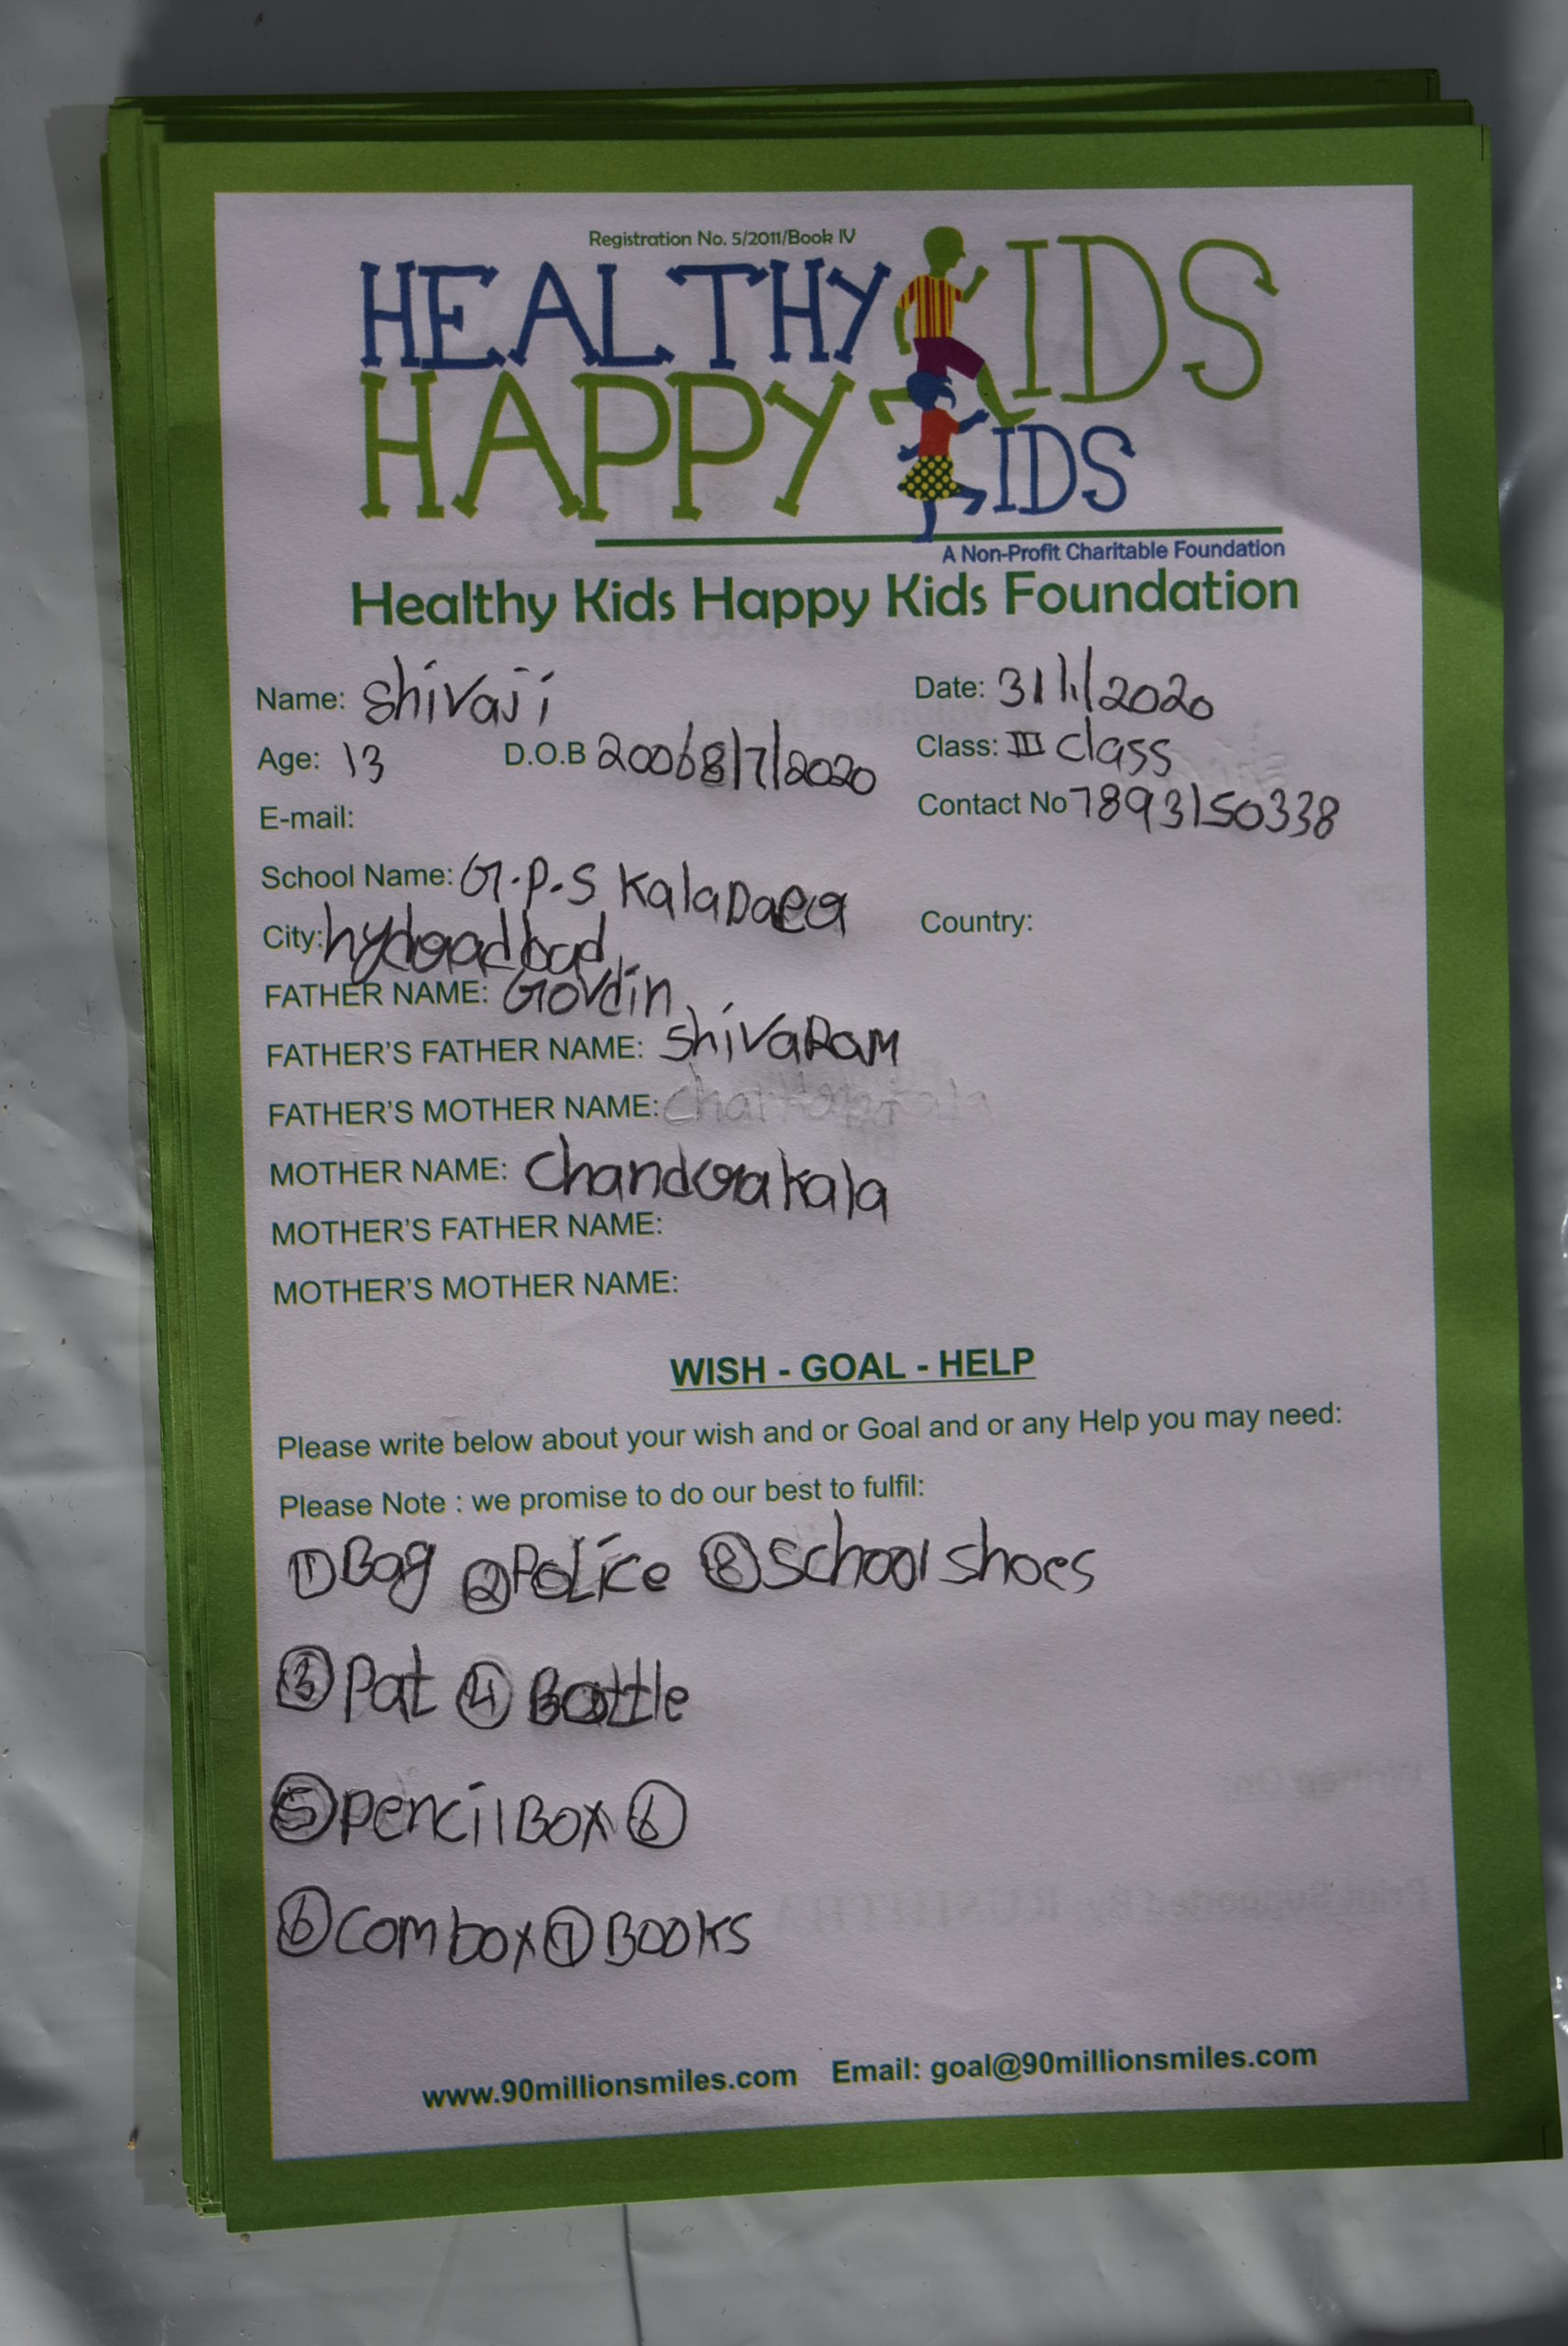 Registration No. 5/2011/Book IV
HEALTHY KIDS
HAPPY KIDS
A Non-Profit Charitable Foundation
Healthy Kids Happy Kids Foundation
Name: Shivaji Date: 31/1/2020
Age: 13 D.O.B 20068/7/2020 Class: III class
E-mail: Contact No 7893150338
School Name: G.P.S
City: hyderadbad Country:
FATHER NAME: Govdin
FATHER'S FATHER NAME: ShivaRam
FATHER'S MOTHER NAME:
MOTHER NAME: Chandrakala
MOTHER'S FATHER NAME:
MOTHER'S MOTHER NAME:
WISH - GOAL - HELP
Please write below about your wish and or Goal and or any Help you may need:
Please Note : we promise to do our best to fulfil:
① Bag ② Police ⑧ School shoes
③ Pat ④ Bottle
⑤ Pencil Box ⑥
⑥ Com box ⑦ BOOKS
www.90millionsmiles.com Email: goal@90millionsmiles.com